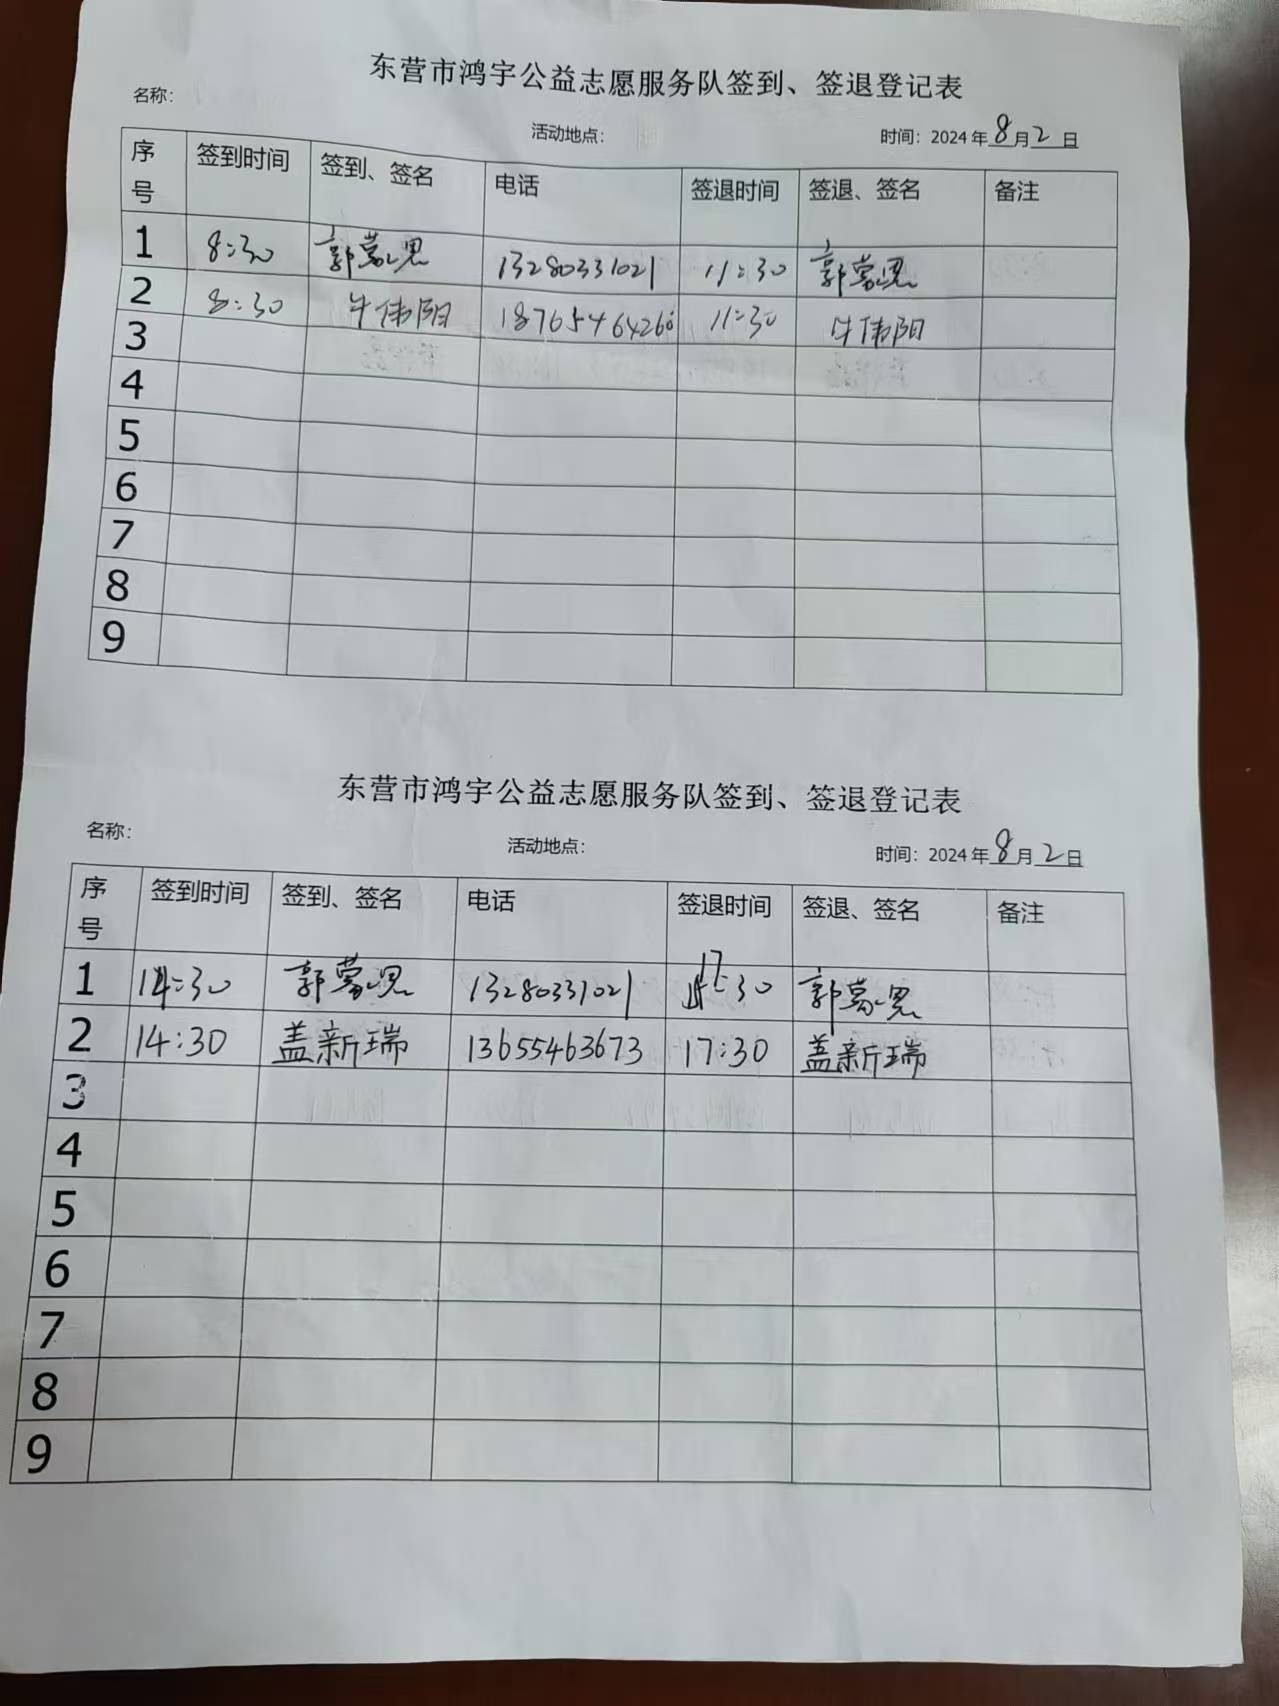 东营市鸿宇公益志愿服务队签到、签退登记表
名称：
活动地点：
时间：2024年8月2日
序号 签到时间 签到、签名 电话 签退时间 签退、签名 备注
1 8:30 郭蒙恩 13280331021 11:30 郭蒙恩
2 8:30 牛伟阳 18765464260 11:30 牛伟阳
3
4
5
6
7
8
9
东营市鸿宇公益志愿服务队签到、签退登记表
名称：
活动地点：
时间：2024年8月2日
序号 签到时间 签到、签名 电话 签退时间 签退、签名 备注
1 14:30 郭蒙恩 13280331021 17:30 郭蒙恩
2 14:30 盖新瑞 13655463673 17:30 盖新瑞
3
4
5
6
7
8
9